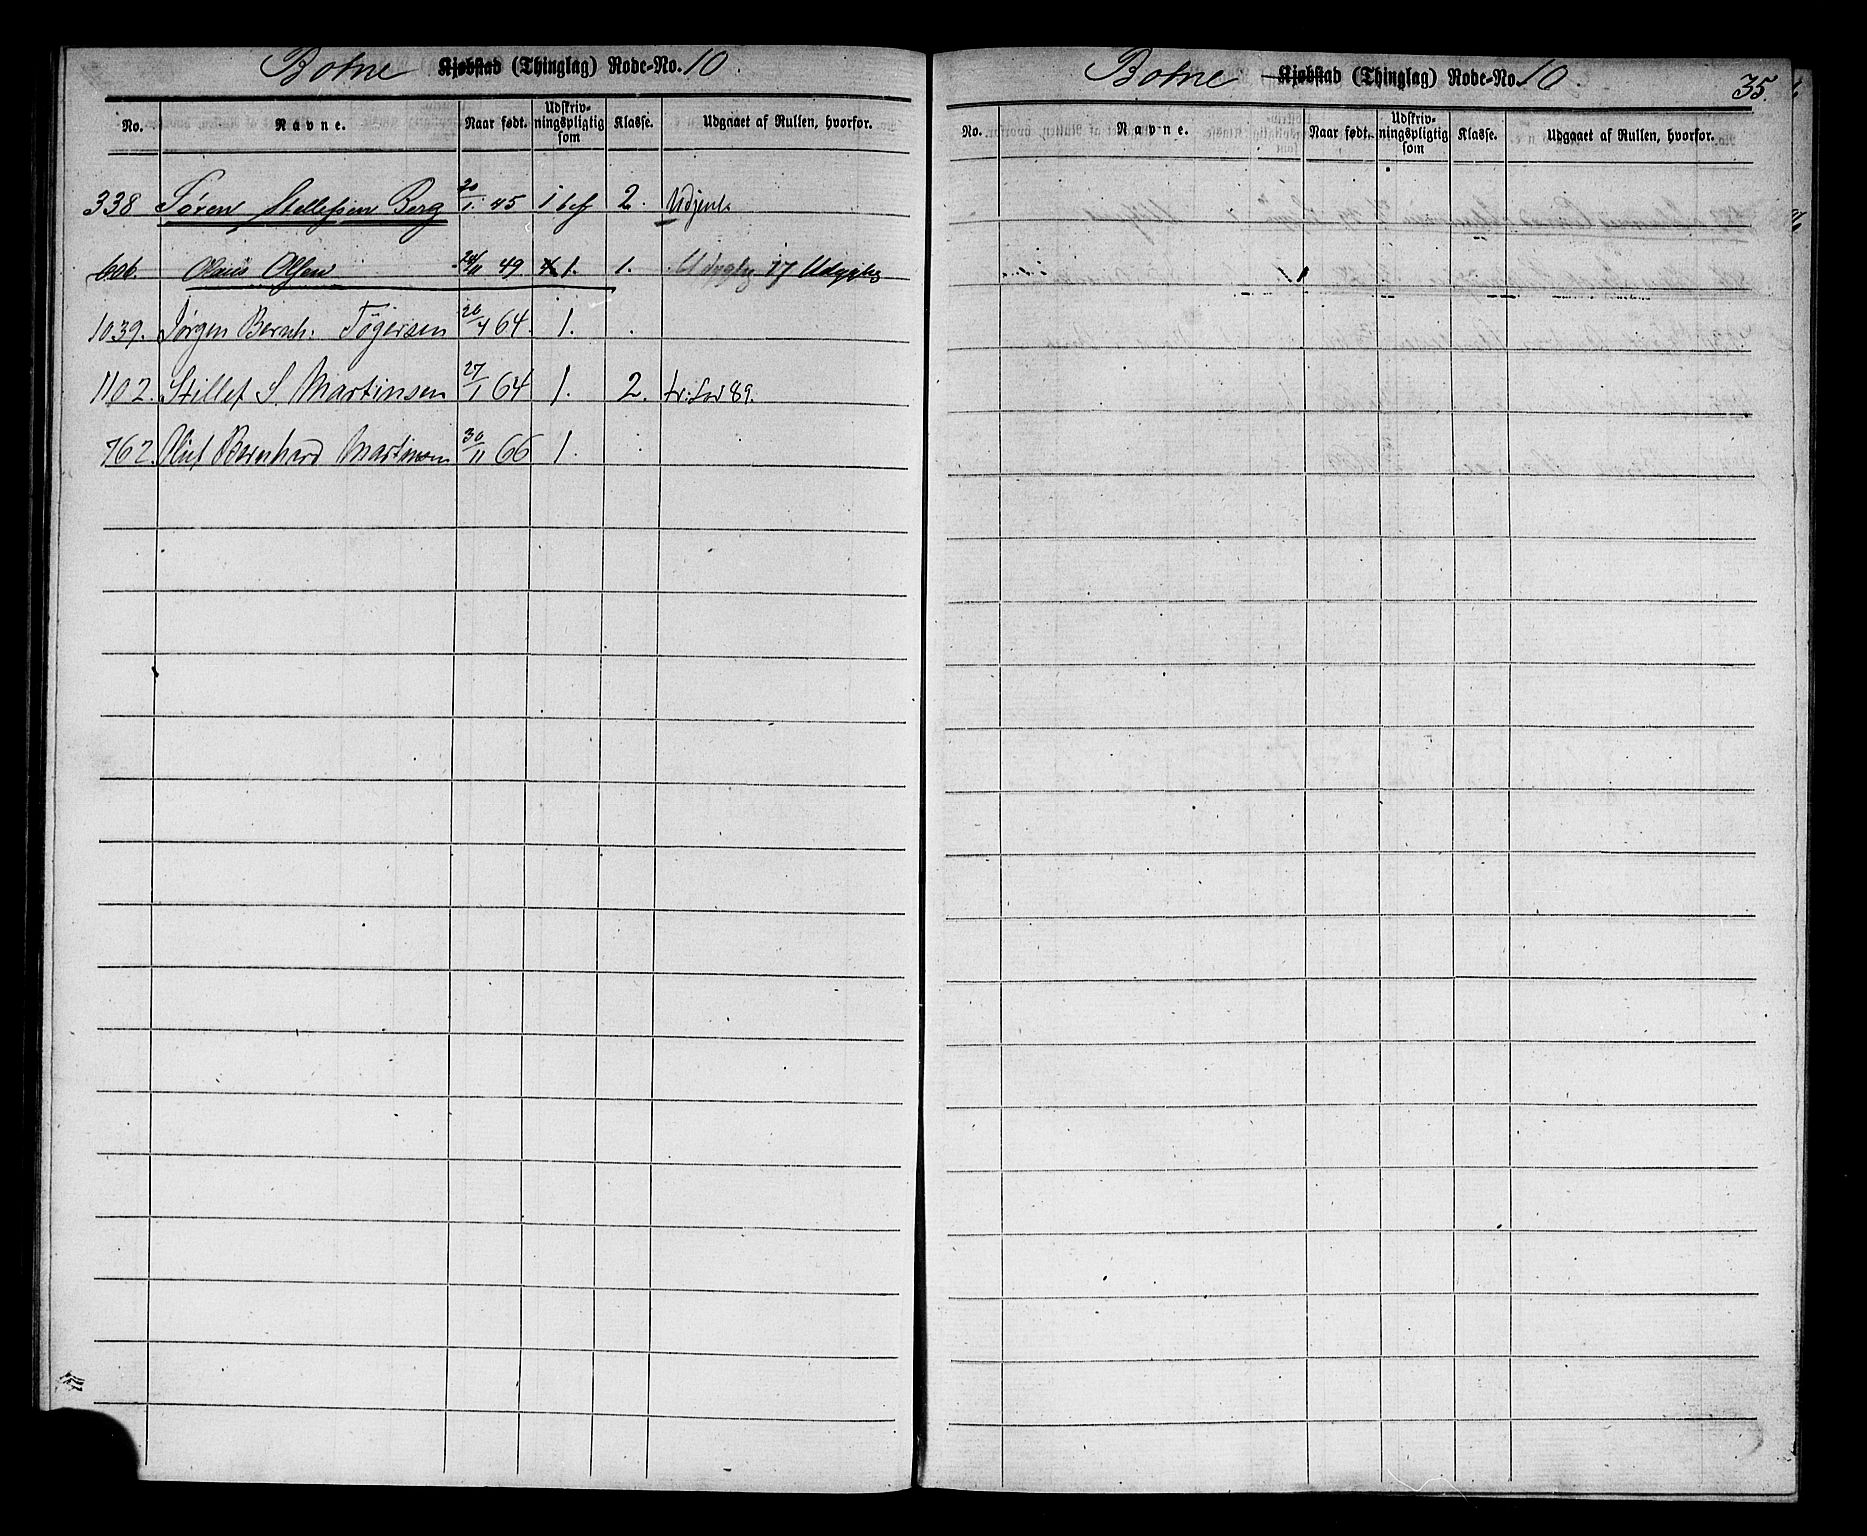 Botne Kjøbstad (Thinglag) Rode-No. 10.
No. Navne. Naar født. Udskrivningspligtig som Klasse. Udgaaet af Rullen, hvorfor.
338 Søren Stillefsen Berg 20/1 45 1 bef 2. Udjent
606. Olaus Olsen 24/11 49 1. 1. 17 Udygtig
1039. Jørgen Bernh: Tøgersen 20/4 64. 1.
1102. Stillef S. Martinsen 27/1 64 1. 2. tr: for 89.
762. Bernhard Martinsen 30/11 66 1.
Botne Kjøbstad (Thinglag) Rode-No. 10. 35.
No. Navne. Naar født. Udskrivningspligtig som Klasse. Udgaaet af Rullen, hvorfor.